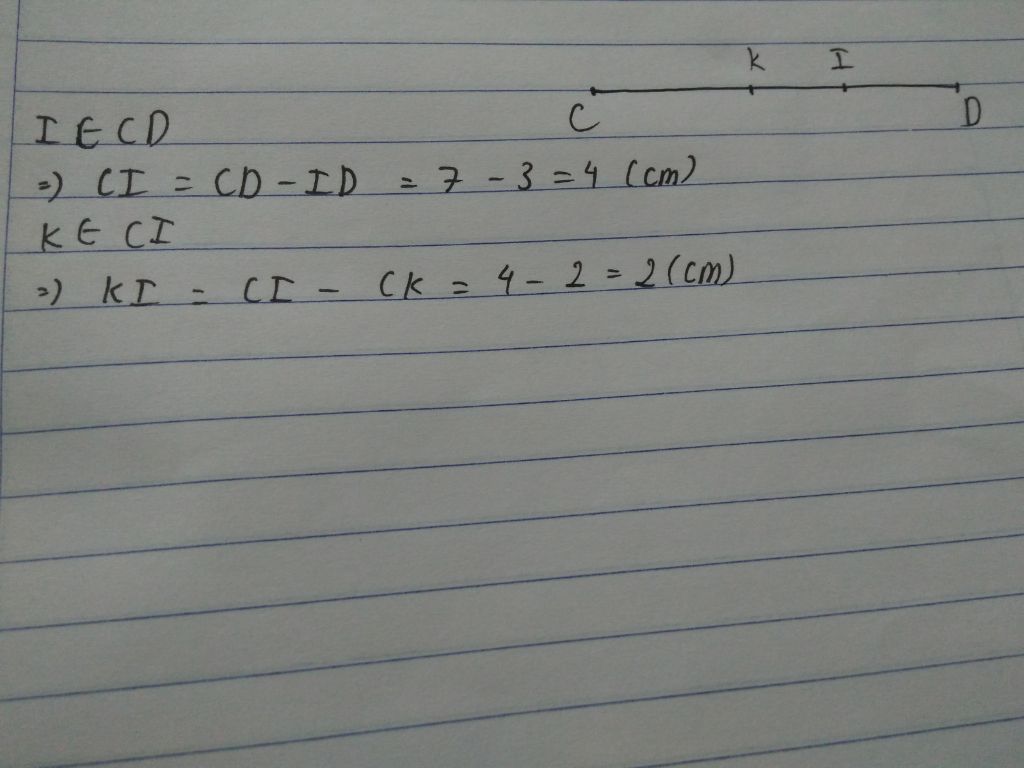 K I
C D
I ∈ CD
=) CI = CD - ID = 7 - 3 = 4 (cm)
K ∈ CI
=) KI = CI - CK = 4 - 2 = 2 (cm)